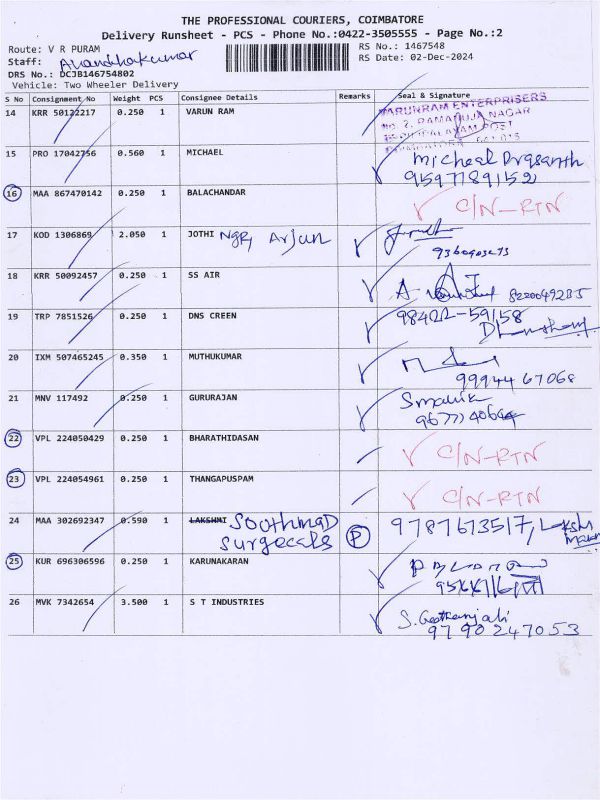 THE PROFESSIONAL COURIERS, COIMBATORE
Delivery Runsheet - PCS - Phone No.:0422-3505555 - Page No.:2
Route: V R PURAM
RS No.: 1467548
Staff: Anandhakumar
RS Date: 02-Dec-2024
DRS No.: DCJB146754802
Vehicle: Two Wheeler Delivery
S No Consignment No Weight PCS Consignee Details Remarks Seal & Signature
14 KRR 50122217 0.250 1 VARUN RAM
VARUNRAM ENTERPRISERS
NO. 2, RAMANUJA NAGAR
POST
15 PRO 17042756 0.560 1 MICHAEL
Micheal Prasanth
9597189152
16 MAA 867470142 0.250 1 BALACHANDAR
C/N-RTN
17 KOD 1306869 2.050 1 JOTHI NGR, Arjun
18 KRR 50092457 0.250 1 SS AIR
8220049235
19 TRP 7851526 0.250 1 DNS CREEN
98422-59158
20 IXM 507465245 0.350 1 MUTHUKUMAR
99944 67068
21 MNV 117492 0.250 1 GURURAJAN
22 VPL 224050429 0.250 1 BHARATHIDASAN
C/N-RTN
23 VPL 224054961 0.250 1 THANGAPUSPAM
C/N-RTN
24 MAA 302692347 0.590 1 LAKSHMI
Surgecals P 9787673517, Lakshmi
25 KUR 696306596 0.250 1 KARUNAKARAN
26 MVK 7342654 3.500 1 S T INDUSTRIES
S. Geethanjali
9790247053